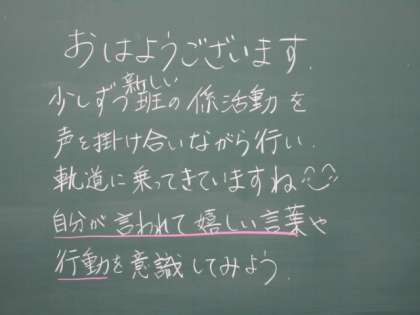 おはようございます.
少しずつ新しい班の係活動を
声を掛け合いながら行い.
軌道に乗ってきていますね
自分が言われて嬉しい言葉や
行動を意識してみよう.